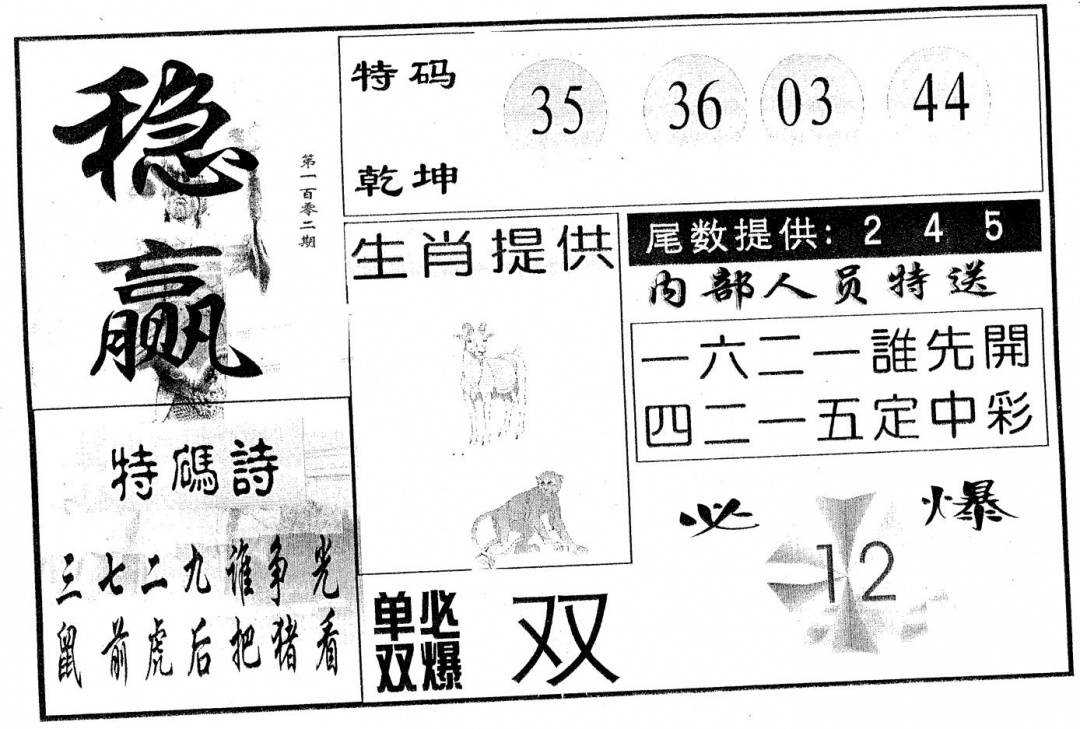 稳赢
第一百零二期
特码
乾坤
35 36 03 44
生肖提供
尾数提供: 2 4 5
内部人员特送
一六二一誰先開
四二一五定中彩
特碼詩
三七二九谁争光
鼠前虎后把猪看
单双必爆
双
必爆
12